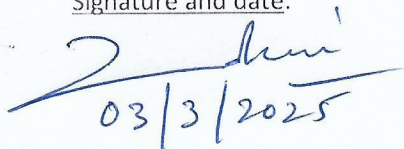 Signature and date:
03/3/2025